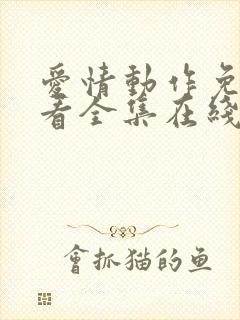 愛情動作免
看全集在綫
會抓猫的鱼